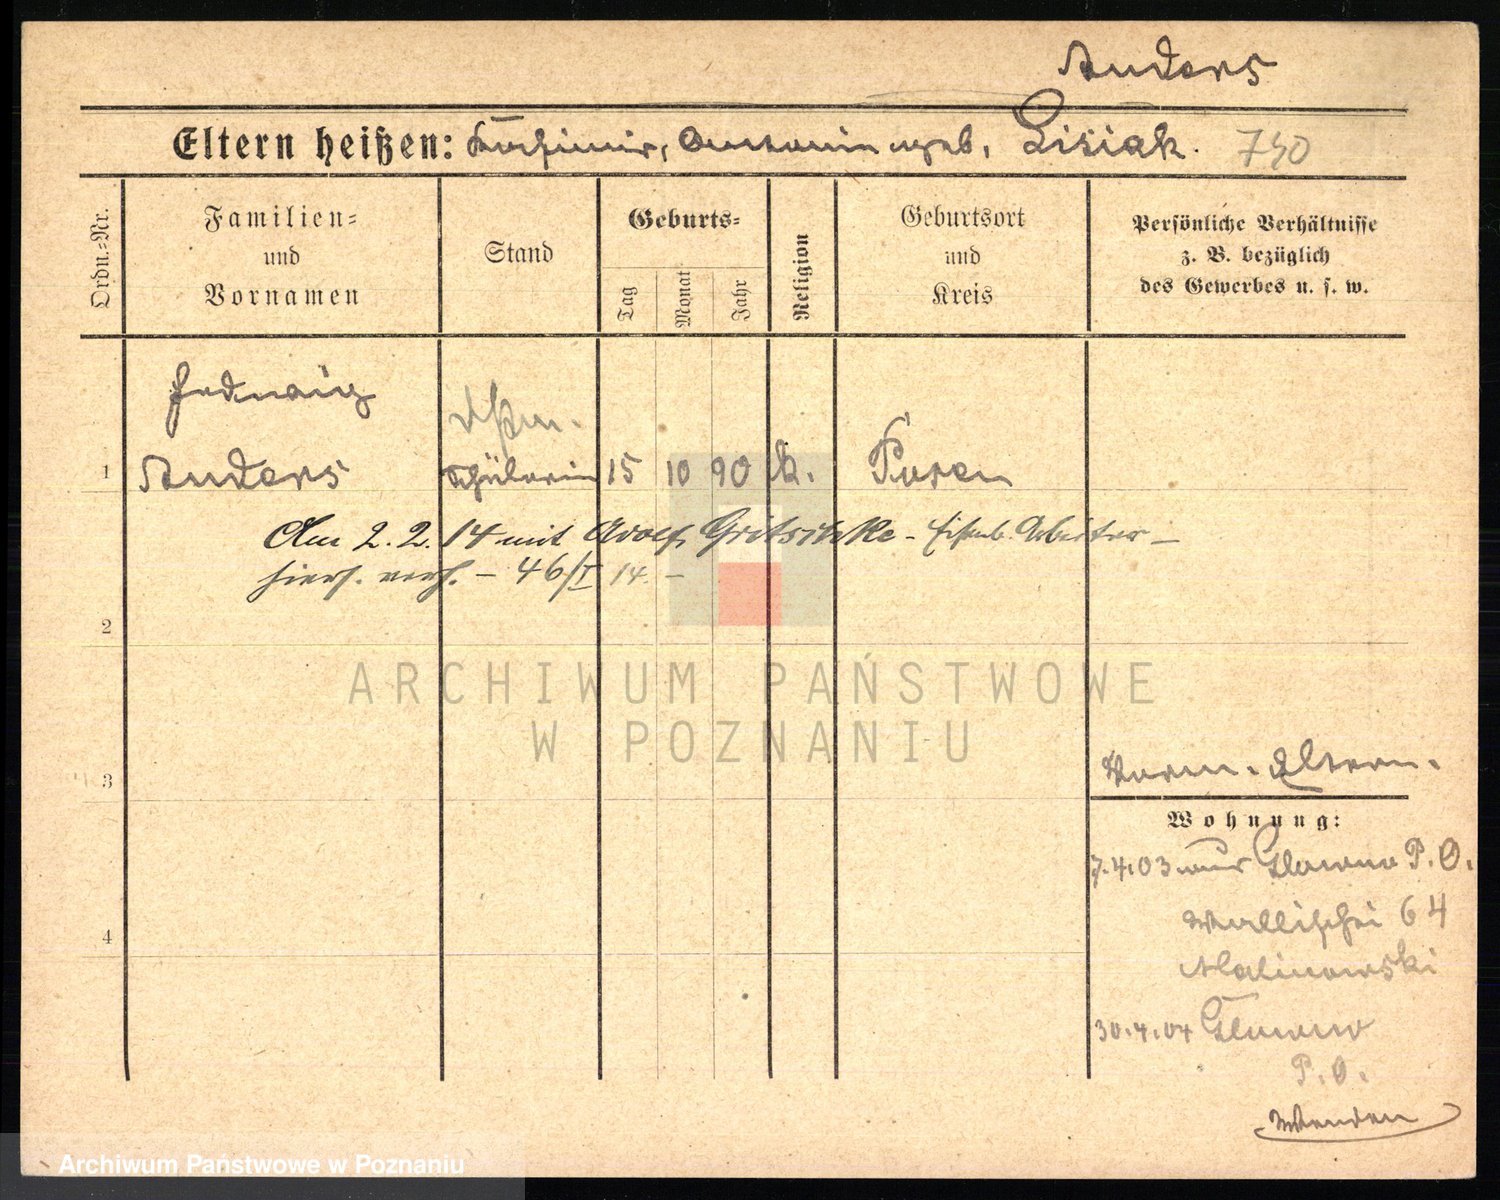 Anders
Eltern heißen: Kasimir, Antonin geb. Lisiak. 740
Ordn.-Nr.
Familien-
und
Vornamen
Stand
Geburts-
Tag
Monat
Jahr
Religion
Geburtsort
und
Kreis
Persönliche Verhältnisse
z. B. bezüglich
des Gewerbes u. s. w.
Hedwig
1 Anders Schülerin 15 10 90 k. Posen
Am 2. 2. 14 mit Adolf Gritschke - Eisenb. Arbeiter -
hiers. verh. - 46/I 14. -
2
ARCHIWUM PAŃSTWOWE
W POZNANIU
3
Eltern.
Wohnung:
7.4.03 aus Glowno P.O.
Wallischei 64
Malinowski
4
30.4.04 Glowno
P.O.
Wenden
Archiwum Państwowe w Poznaniu